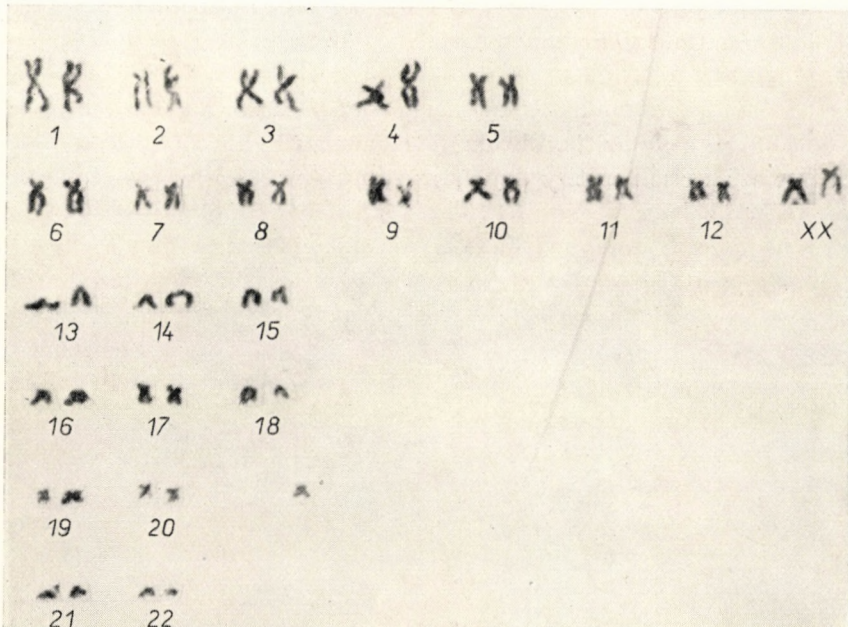 1 2 3 4 5
6 7 8 9 10 11 12 XX
13 14 15
16 17 18
19 20
21 22